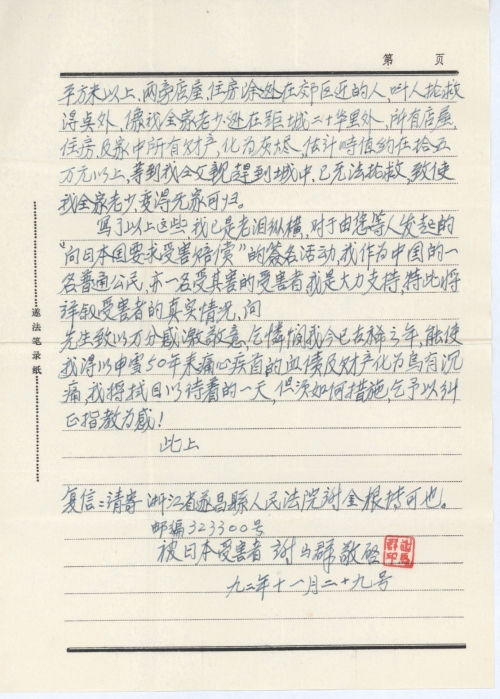 第　页
平方米以上，两旁店屋，住房除处在郊区近的人，叫人抢救
得桌外，像我全家老少处在距城二十华里外，所有店屋
住房及家中所有财产，化为灰烬，估计时值约在拾五
万元以上，等到我公父親赶到城中，已无法抢救，致使
我全家老少，变得无家可归。
写了以上这些，我已是老泪纵横，对于由您等人发起的
“向日本国要求受害赔偿”的签名活动，我作为中国的一
名普通公民，亦一名受其害的受害者，我是大力支持，特此将
详叙受害者的真实情况，向
先生致以万分感激敬意，乞怜悯我今已古稀之年，能使
我得以申雪50年来痛心疾首的血债及财产化为乌有沉
痛，我将拭目以待着的一天，但须如何措施，乞予以纠
正指教为感！
此上
复信：请寄浙江省遂昌縣人民法院謝金根转可也。
邮编323300号
被日本受害者 謝马群敬启
九二年十一月二十九号
遂法笔录纸